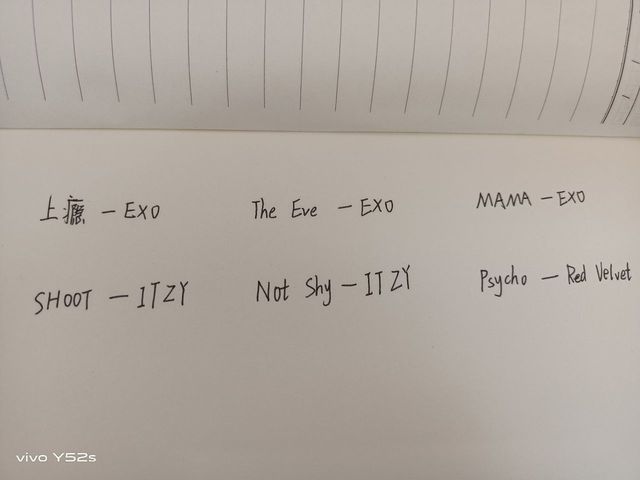 上癮 — EXO The Eve — EXO MAMA — EXO
SHOOT — ITZY Not Shy — ITZY Psycho — Red Velvet
vivo Y52s